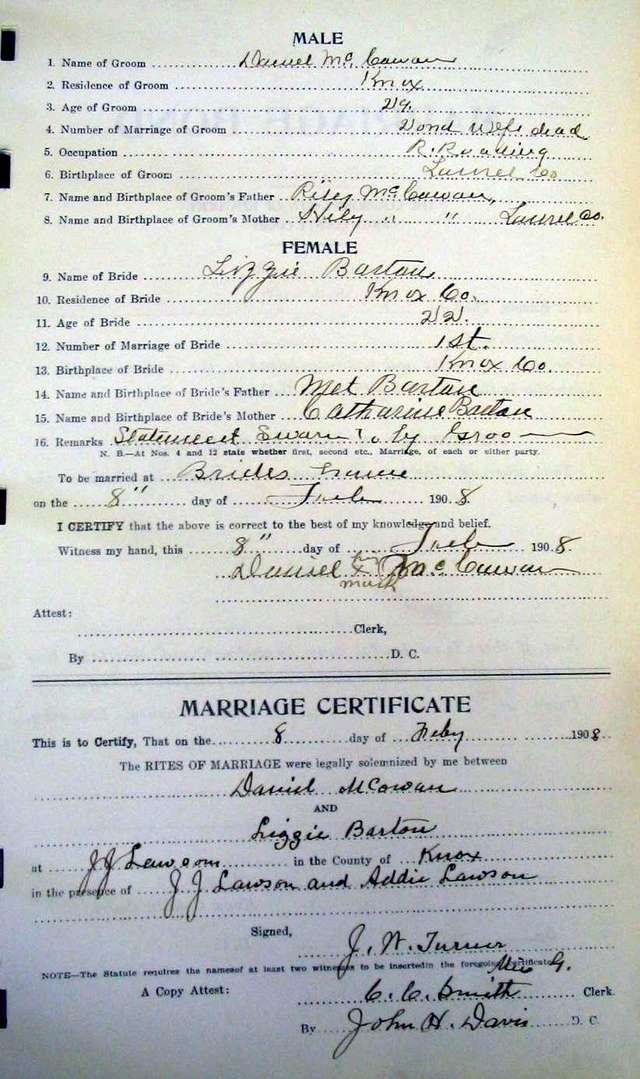 MALE
1. Name of Groom Daniel Mc Cowan
2. Residence of Groom Knox
3. Age of Groom 29.
4. Number of Marriage of Groom 2ond Wife dead
5. Occupation R. Roading
6. Birthplace of Groom Laurel Co
7. Name and Birthplace of Groom's Father Riley McCowan,
8. Name and Birthplace of Groom's Mother " " Laurel Co.
FEMALE
9. Name of Bride Lizzie Barton
10. Residence of Bride Knox Co.
11. Age of Bride 22.
12. Number of Marriage of Bride 1st.
13. Birthplace of Bride Knox Co.
14. Name and Birthplace of Bride's Father Met Barton
15. Name and Birthplace of Bride's Mother Catharine Barton
16. Remarks Statement Sworn to by Groom
N. B.—At Nos. 4 and 12 state whether first, second etc., Marriage, of each or either party.
To be married at Brides home
on the 8" day of Feb 1908
I CERTIFY that the above is correct to the best of my knowledge and belief.
Witness my hand, this 8" day of Feb 1908
Daniel x McCowan
mark
Attest:
Clerk,
By D. C.
MARRIAGE CERTIFICATE
This is to Certify, That on the 8 day of Feby 1908
The RITES OF MARRIAGE were legally solemnized by me between
Daniel McCowan
AND
Lizzie Barton
at J J Lawson in the County of Knox
in the presence of J J Lawson and Addie Lawson
Signed,
J. W. Turner
NOTE—The Statute requires the names of at least two witnesses to be inserted in the foregoing certificate. G.
A Copy Attest: C. C. Smith Clerk.
By John H. Davis D. C.